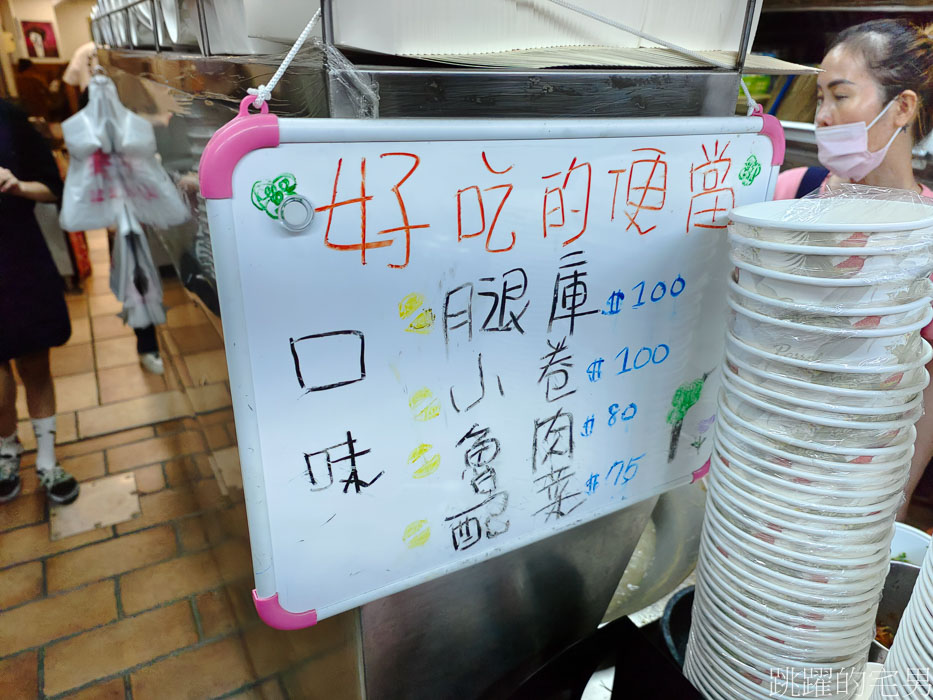 好吃的便當
口味
腿庫 $100
小卷 $100
魯肉 $80
配菜 $75
跳躍的宅男